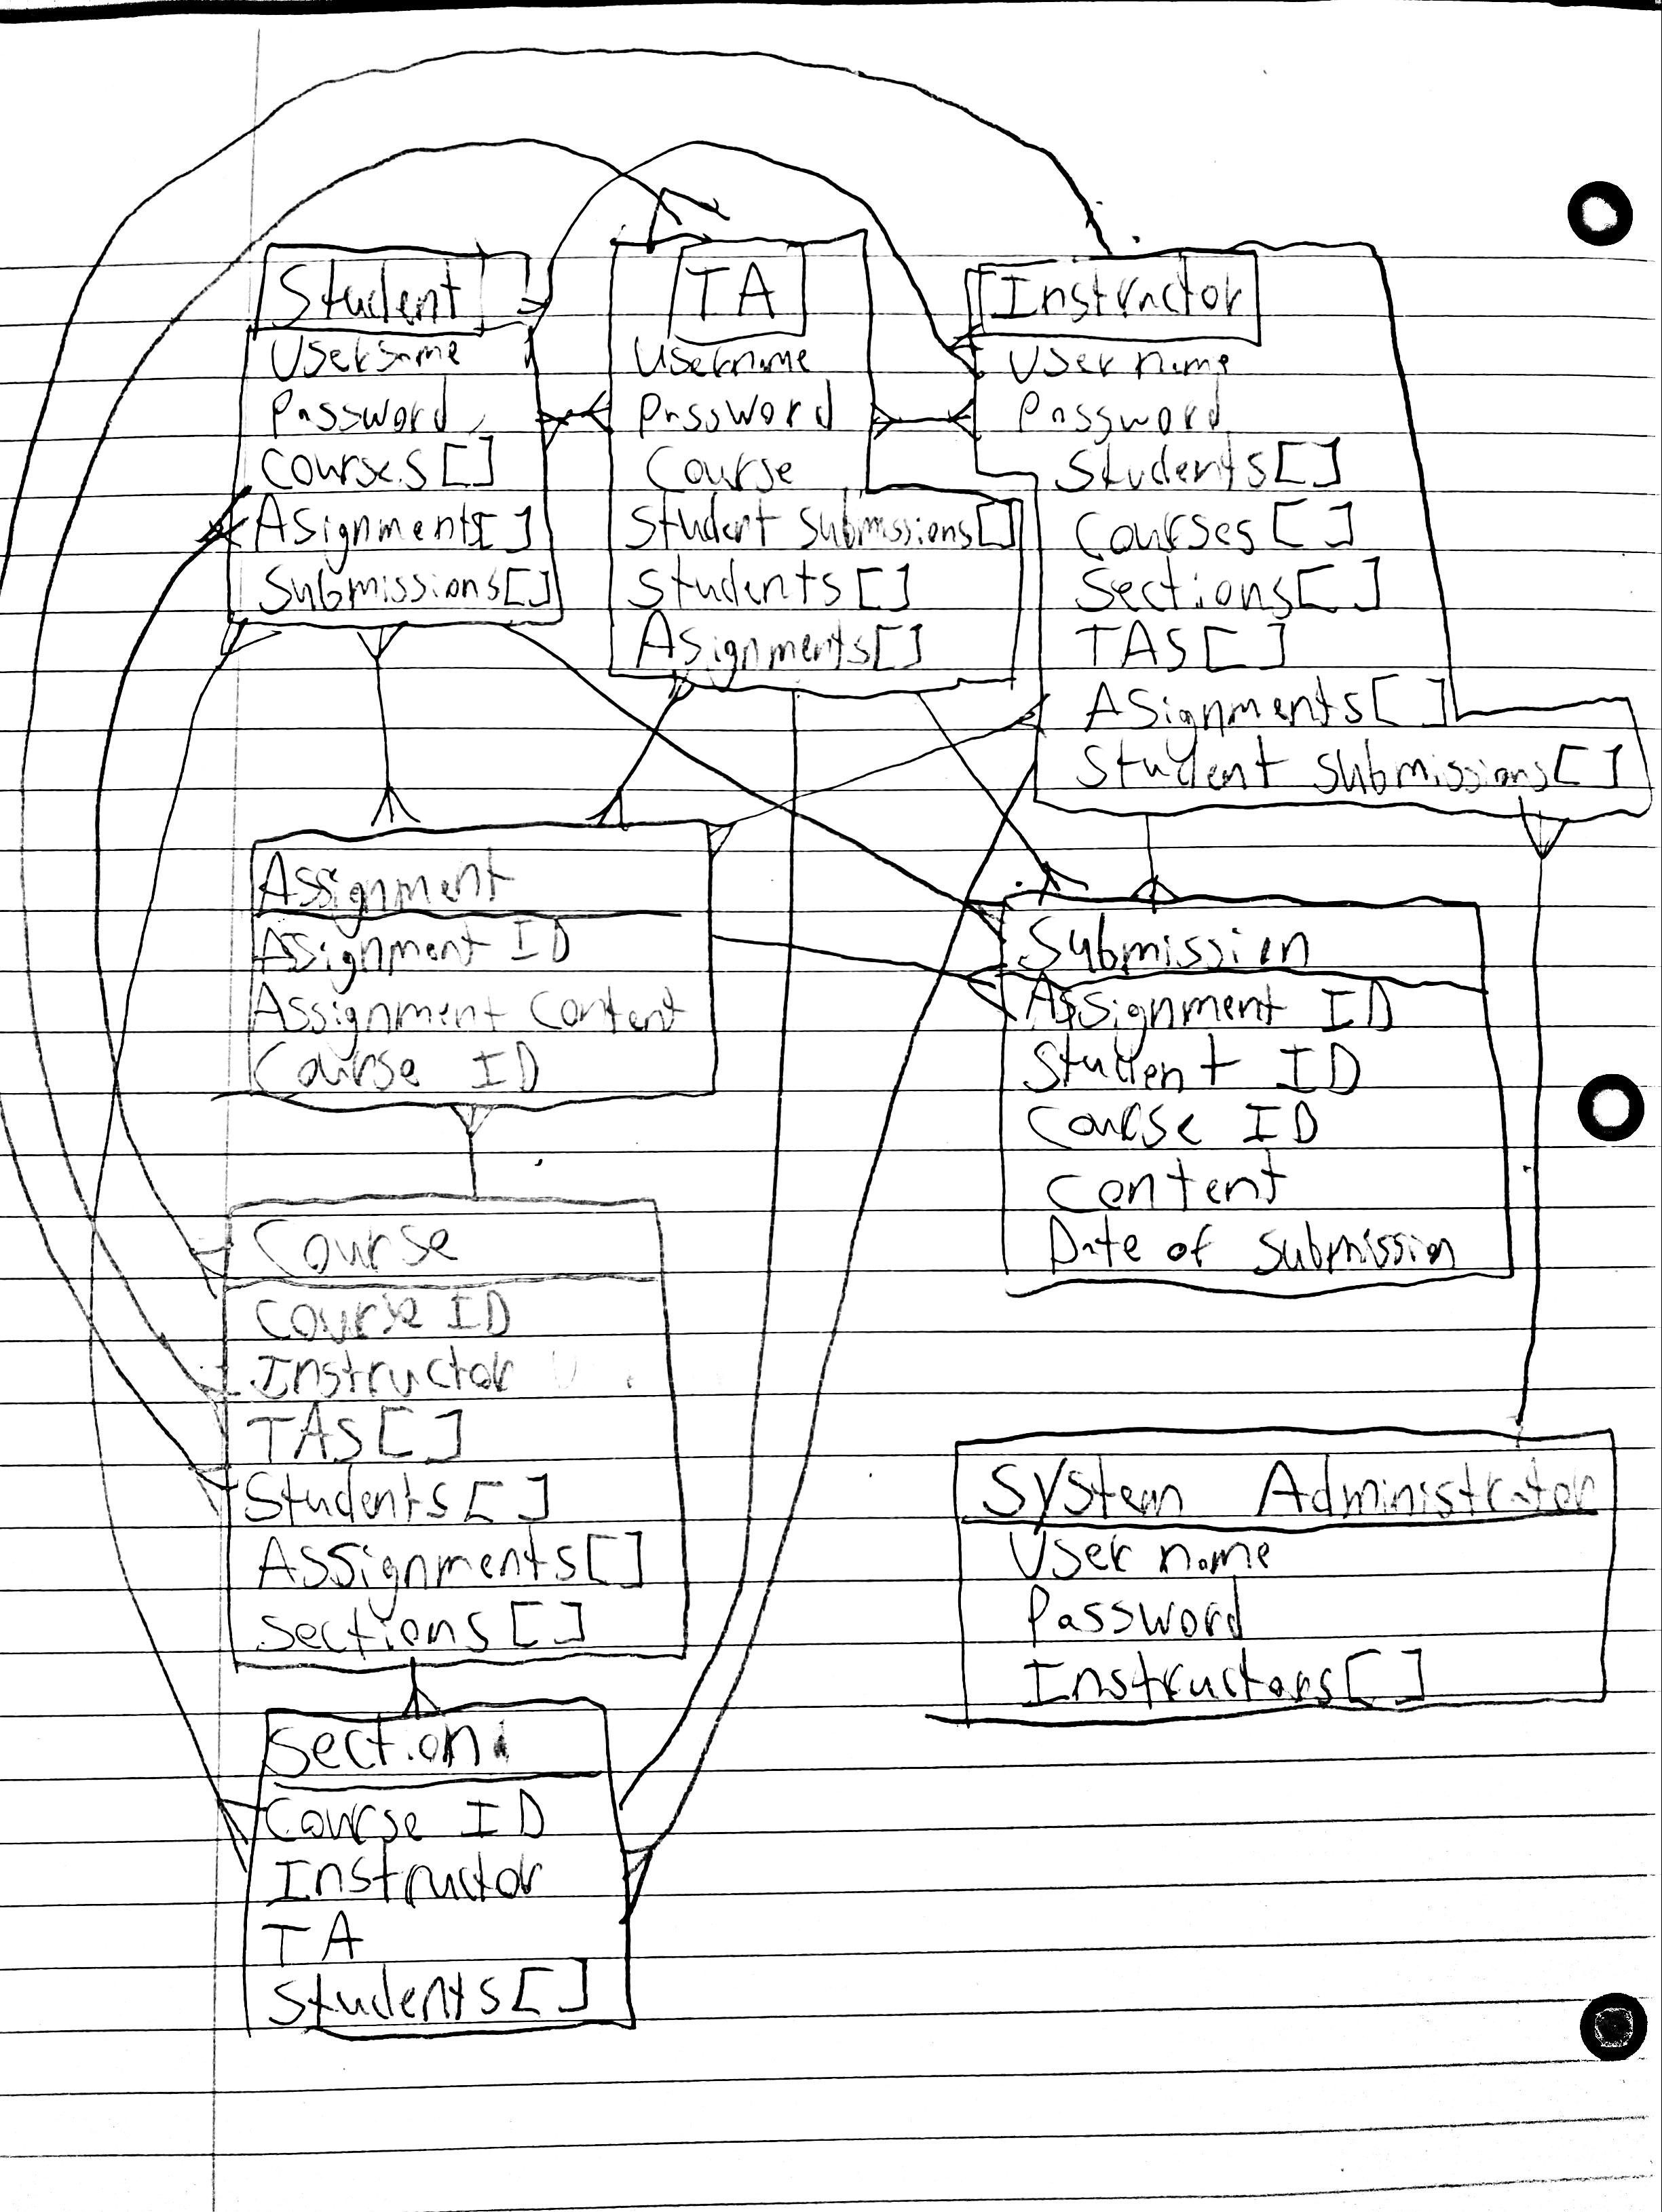 Student
Username
Password
Courses []
Asignments[]
Submissions[]
TA
Username
Password
Course
Student Submissions[]
Students []
Asignments[]
Instructor
User name
Password
Students[]
Courses []
Sections[]
TAS []
ASignments[]
Student Submissions[]
Assignment
Assignment ID
Assignment Content
Course ID
Submission
Assignment ID
Student ID
Course ID
Content
Date of Submission
Course
Course ID
Instructor
TAS []
Students []
Assignments[]
Sections []
System Administrator
User name
Password
Instructors[]
Section
Course ID
Instructor
TA
Students[]